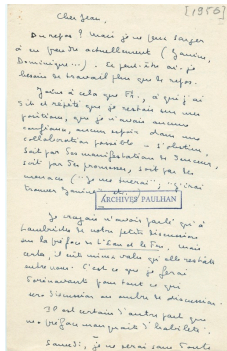 [1956]
Cher Jean,
Du repos ? mais je ne peux songer
à en prendre actuellement (Janine,
Dominique...). Et peut-être ai-je
besoin de travail plus que de repos.
J'aime à cela que F., à qui j'ai
dit et répété que je restais sur mes
positions, que je n'avais aucune
confiance, aucun espoir dans une
collaboration possible — s'obstine,
soit par des manifestations de
soit par des promesses, soit par des
menaces ("je me tuerai", "j'irai
trouver Janine", etc.)
ARCHIVES PAULHAN
Je croyais n'avoir parlé qu'à
Lambrichs de notre petite discussion
sur la préface de L'Eau et le Feu, mais
certes, il eût mieux valu qu'elle restât
entre nous. C'est ce que je ferai
dorénavant pour tout ce qui
sera discussion ou ombre de discussion.
Il est certain d'autre part que
ma préface manquait d'habileté.
Samedi, je ne serai sans doute